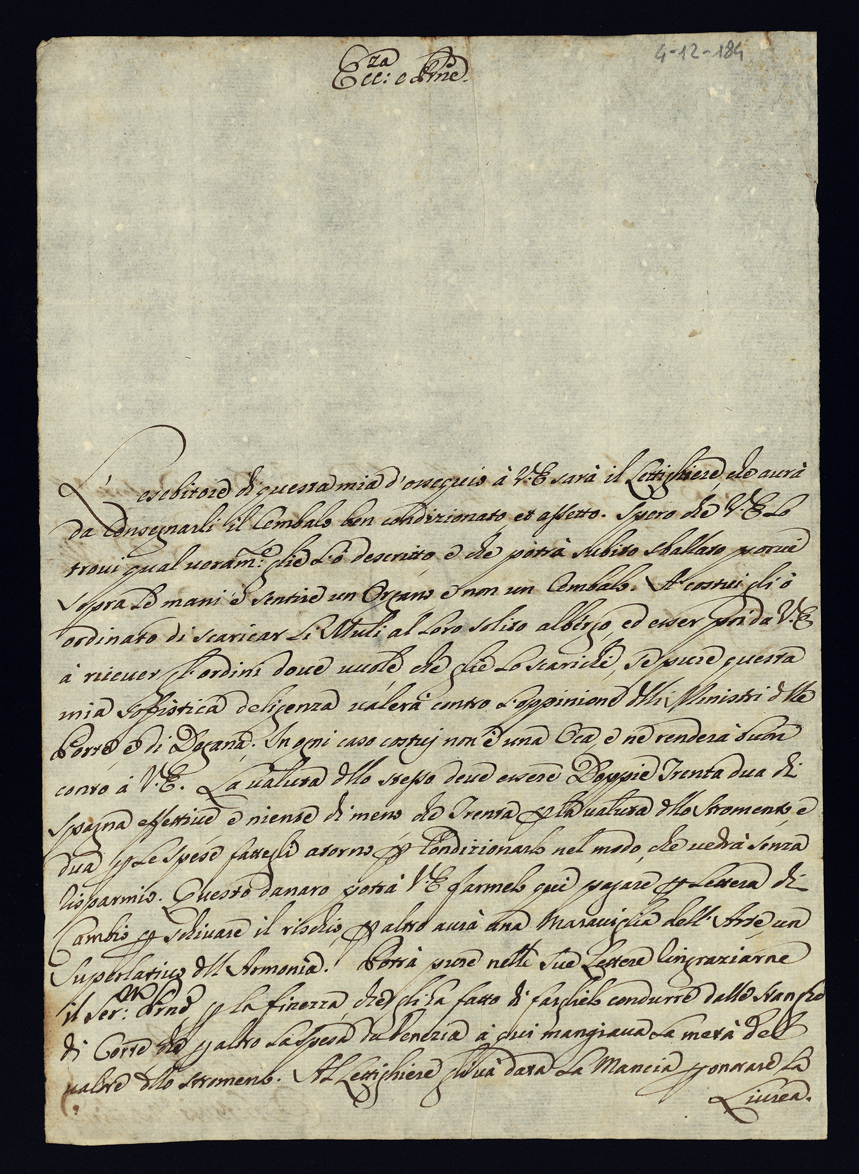 4-12-184
Ecc:za e Prne.
L' esebitore di questa mia d'ossequio à V:E sarà il Lettighiere, che aurà
da Consegnarli il Cembalo ben condizionato et assetto. Spero che V:E Lo
troui qual uoram:e glie Lò descritto e che potrà subito sballato porue
sopra Le mani è sentire un Organo è non un Cembalo. A' costui gli ò
ordinato di scaricar Li Muli al Loro solito albergo, ed esser poi da V:E
à riceuer gl'ordini doue uuole, che glie Lo scarichi, se pure questa
mia sofistica deligenza ualerà contro L'oppinione delli Ministri delle
Porte, è di Dogana. In ogni caso costuj non è una Oca, e ne renderà buon
conto à V:E. La ualuta dello stesso deue essere Doppie Trenta dua di
Spagna effettiue e niente di meno che Trenta p la ualuta dello stromento e
dua p Le spese fattegli atorno p Condizionarlo nel modo, che uedrà senza
lisparmio. Questo danaro potrà V:E farmelo quì pagare p Lettera di
Cambio p schiuare il rischio p altro aurà una Marauiglia dell'Arte un
Superlatiuo dell Armonia. Potrà pure nelle sue Lettere ringraziarne
il Ser:mo Prne p la finezza, che gli hà fatto di farglielo condurre dallo
di Corte che p altro La spesa da Venezia à qui mangiaua La metà del
ualore dello stromento. Al Lettighiere darà La Mancia p onorare La
Liurea.